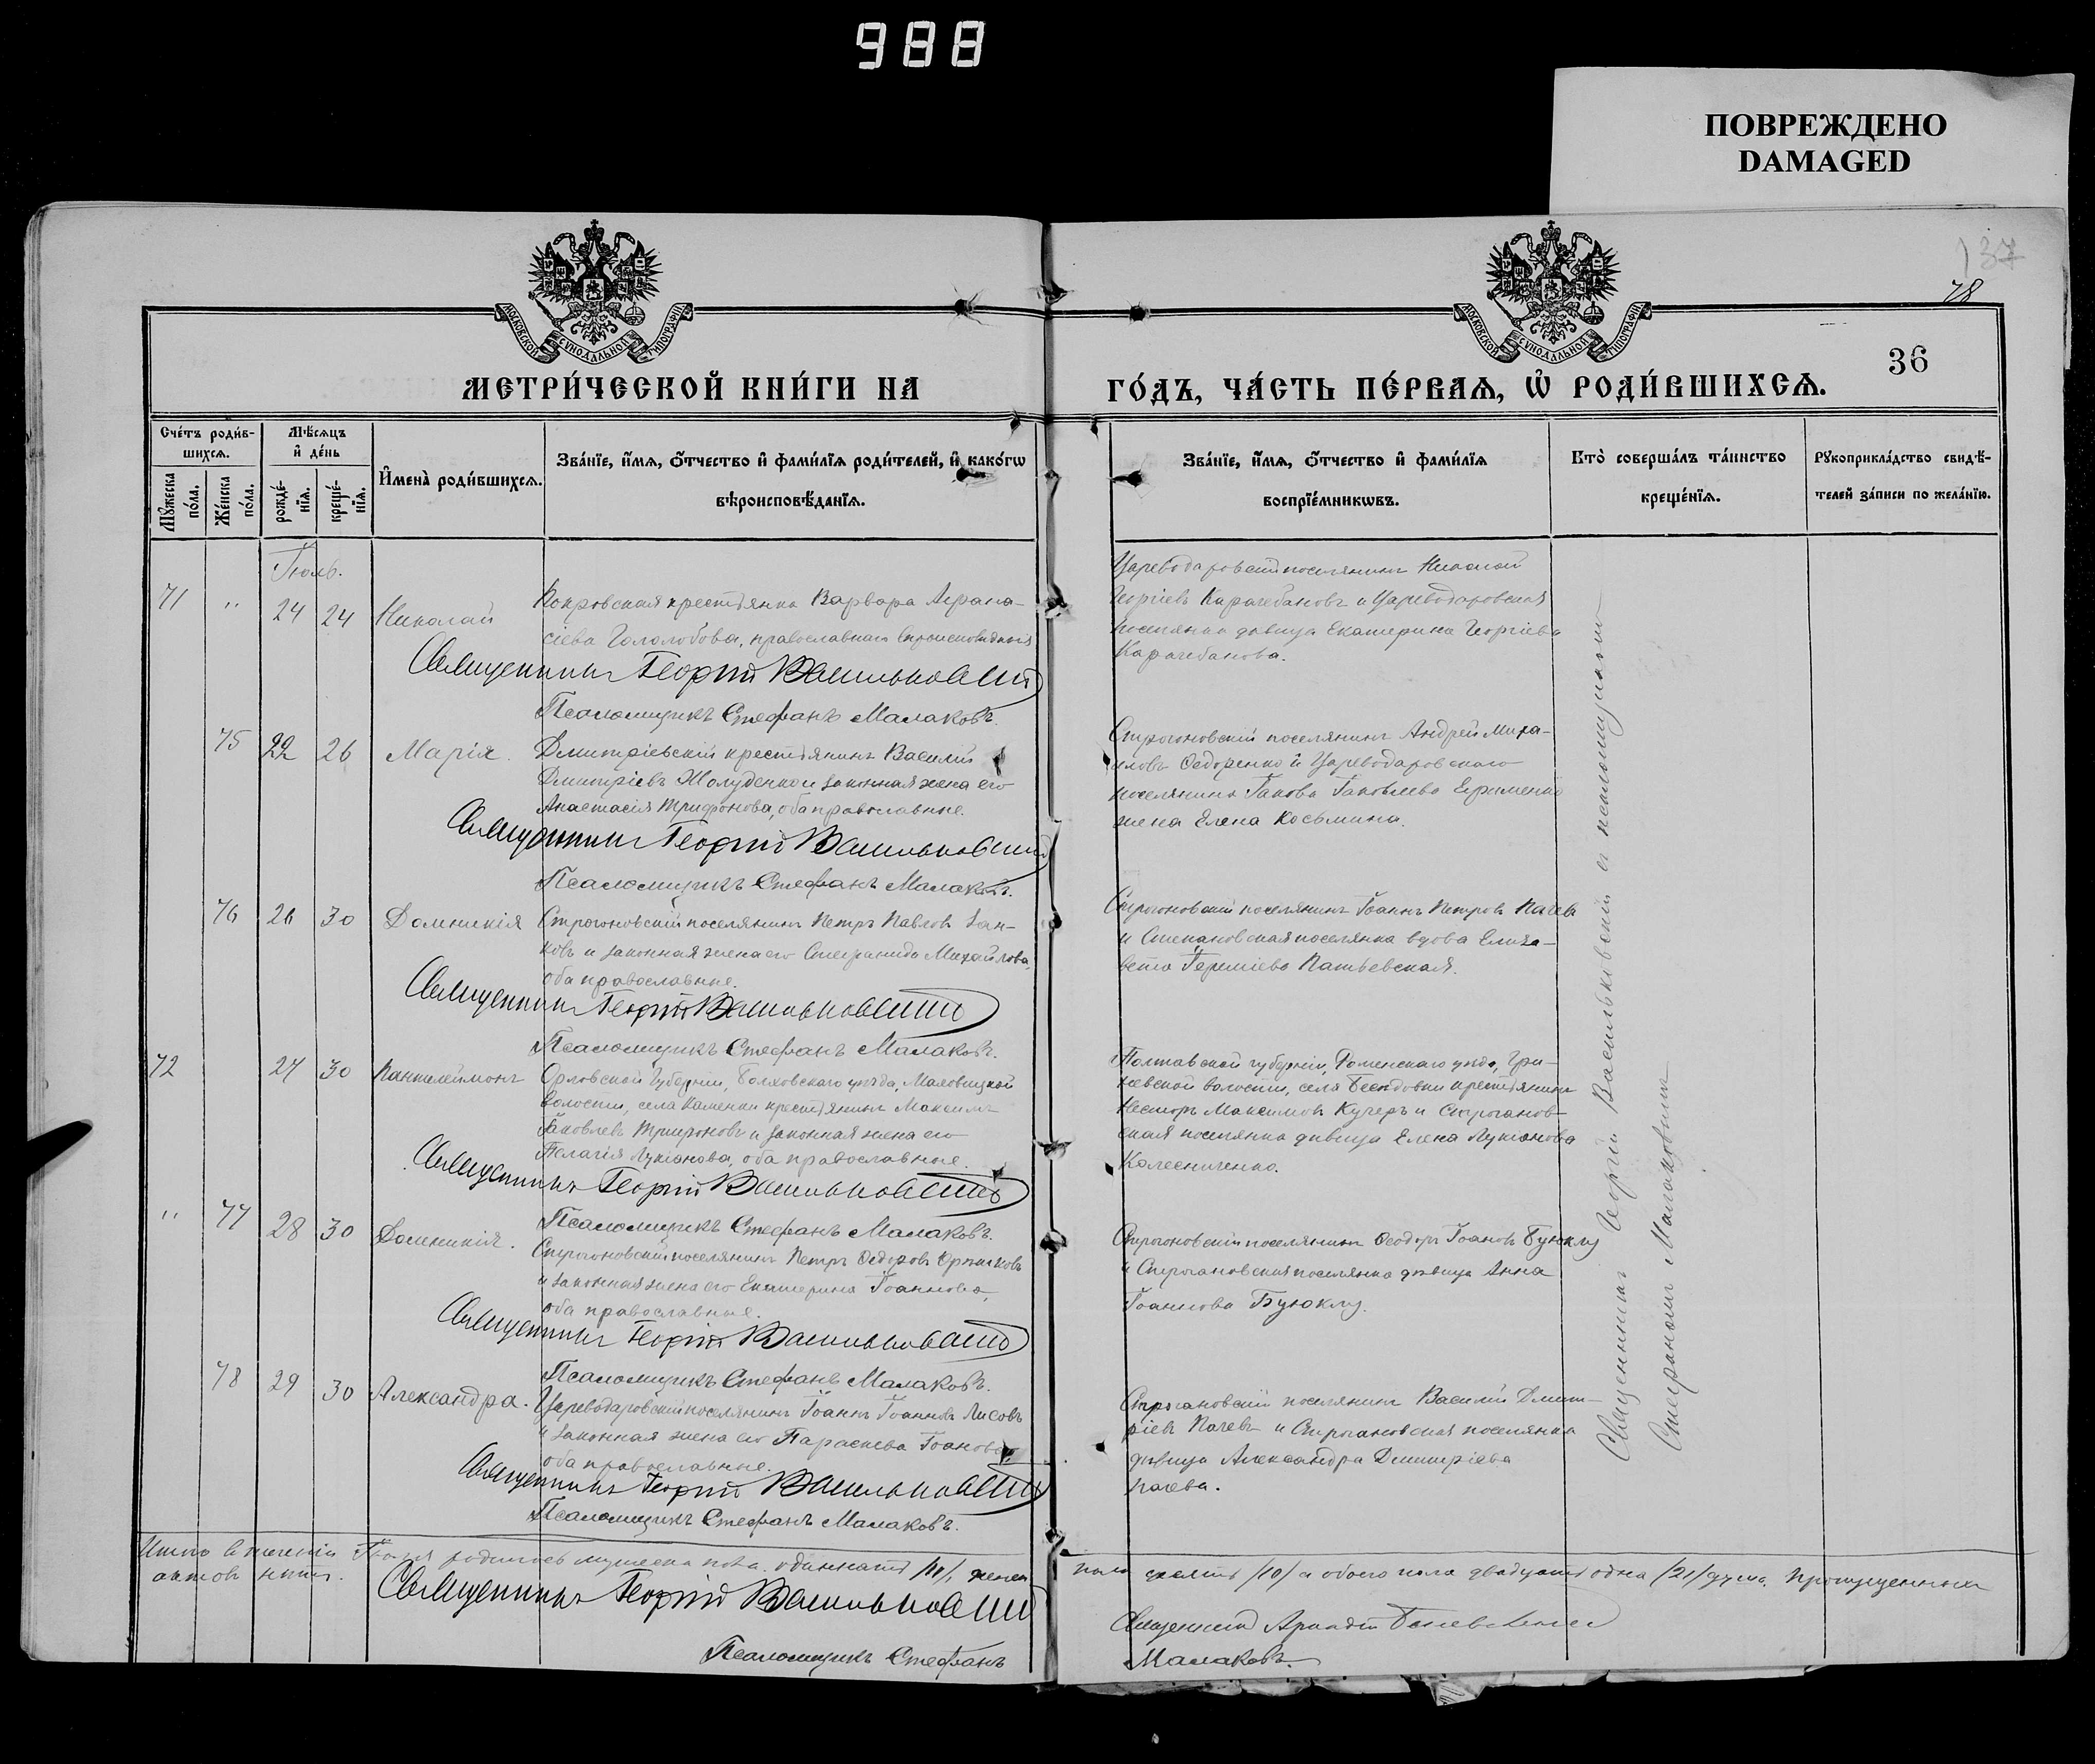 988
ПОВРЕЖДЕНО
DAMAGED
137
78
36
МОСКОВСКОЙ СУНОДАЛЬНОЙ ТИПОГРАФІИ
МОСКОВСКОЙ СУНОДАЛЬНОЙ ТИПОГРАФІИ
МЕТРИ́ЧЕСКОЙ КНИ́ГИ НА
ГО́ДЪ, ЧА́СТЬ ПЕ́РВАѦ, Ѡ РОДИ́ВШИХСѦ.
Сче́тъ роди́в-
шихсѧ.
Мꙋжеска по́ла.
Же́нска по́ла.
Мѣ́сѧцъ
и҆ де́нь
рожде́-
нїѧ.
креще́-
нїѧ.
И҆мена̀ роди́вшихсѧ.
Зва́нїе, и҆́мѧ, ѻ҆́тчество и҆ фами́лїѧ роди́телей, и҆ како́гѡ
вѣроисповѣ́данїѧ.
Зва́нїе, и҆́мѧ, ѻ҆́тчество и҆ фами́лїѧ
воспрїе́мникѡвъ.
Кто̀ соверша́лъ та́инство
креще́нїѧ.
Рꙋкоприкла́дство свидѣ́-
телей за́писи по жела́нїю.
Іюль.
71 " 24 24 Николай
Покровская крестьянка Варвара Афана-
сіева Гололобова, православнаго вѣроисповѣданія
Священникъ Георгій Васильковскій
Псаломщикъ Стефанъ Малаковъ.
Цареводаровскій поселянинъ Николай
Георгіевъ Карагебановъ и Цареводаровская
поселянка дѣвица Екатерина Георгіева
Карагебанова.
75 22 26 Марія.
Дмитріевскій крестьянинъ Василій
Дмитріевъ Жолуденко и законная жена его
Анастасія Трифонова, оба православные.
Священникъ Георгій Васильковскій
Псаломщикъ Стефанъ Малаковъ.
Строгоновскій поселянинъ Андрей Миха-
иловъ Ѳедоренко и Цареводаровскаго
поселянина Іакова Іаковлева Ефименко
жена Елена Косьмина.
76 26 30 Домникія
Строгоновскій поселянинъ Петръ Павловъ Зан-
ковъ и законная жена его Стефанида Михайлова,
оба православные.
Священникъ Георгій Васильковскій
Псаломщикъ Стефанъ Малаковъ.
Строгоновскій поселянинъ Іоаннъ Петровъ Пачевъ
и Степановская поселянка вдова Елиза-
вета
72 27 30 Пантелеймонъ
Орловской губерніи, Болховскаго уѣзда,
волости, села Каменки крестьянинъ Максимъ
Іаковлевъ Трифоновъ и законная жена его
Пелагія Лукіанова, оба православные.
Священникъ Георгій Васильковскій
Псаломщикъ Стефанъ Малаковъ.
Полтавской губерніи, Роменскаго уѣзда, Гри-
невской волости, села Бесѣдовки крестьянинъ
Несторъ Максимовъ Кучеръ и Строганов-
ская поселянка дѣвица Елена Лукіанова
Колесниченко.
" 77 28 30 Домникія.
Строгоновскій поселянинъ Петръ Ѳедоровъ
и законная жена его Екатерина Іоаннова,
оба православные.
Священникъ Георгій Васильковскій
Псаломщикъ Стефанъ Малаковъ.
Строгоновскій поселянинъ Ѳеодоръ Іоановъ Буюклу
и Строгановская поселянка дѣвица Анна
Іоаннова Буюклу.
78 29 30 Александра.
Цареводаровскій поселянинъ Іоаннъ Іоанновъ Лисовъ
и законная жена его Параскева Іоанова
оба православные.
Священникъ Георгій Васильковскій
Псаломщикъ Стефанъ Малаковъ.
Строгановскій поселянинъ Василій Дмит-
ріевъ Пачевъ и Строгановская поселянка
дѣвица Александра Димитріева
Пачева.
Священникъ Георгій Васильковскій съ псаломщикомъ
Стефаномъ Малаковымъ
Итого въ теченіи Іюля родилось мужеска пола одиннадцать /11/, женска пола десять /10/ а обоего пола двадцать одна /21/ душа. Пропущенныхъ
актовъ нѣтъ.
Священникъ Георгій Васильковскій
Священникъ Аркадій
Псаломщикъ Стефанъ Малаковъ.